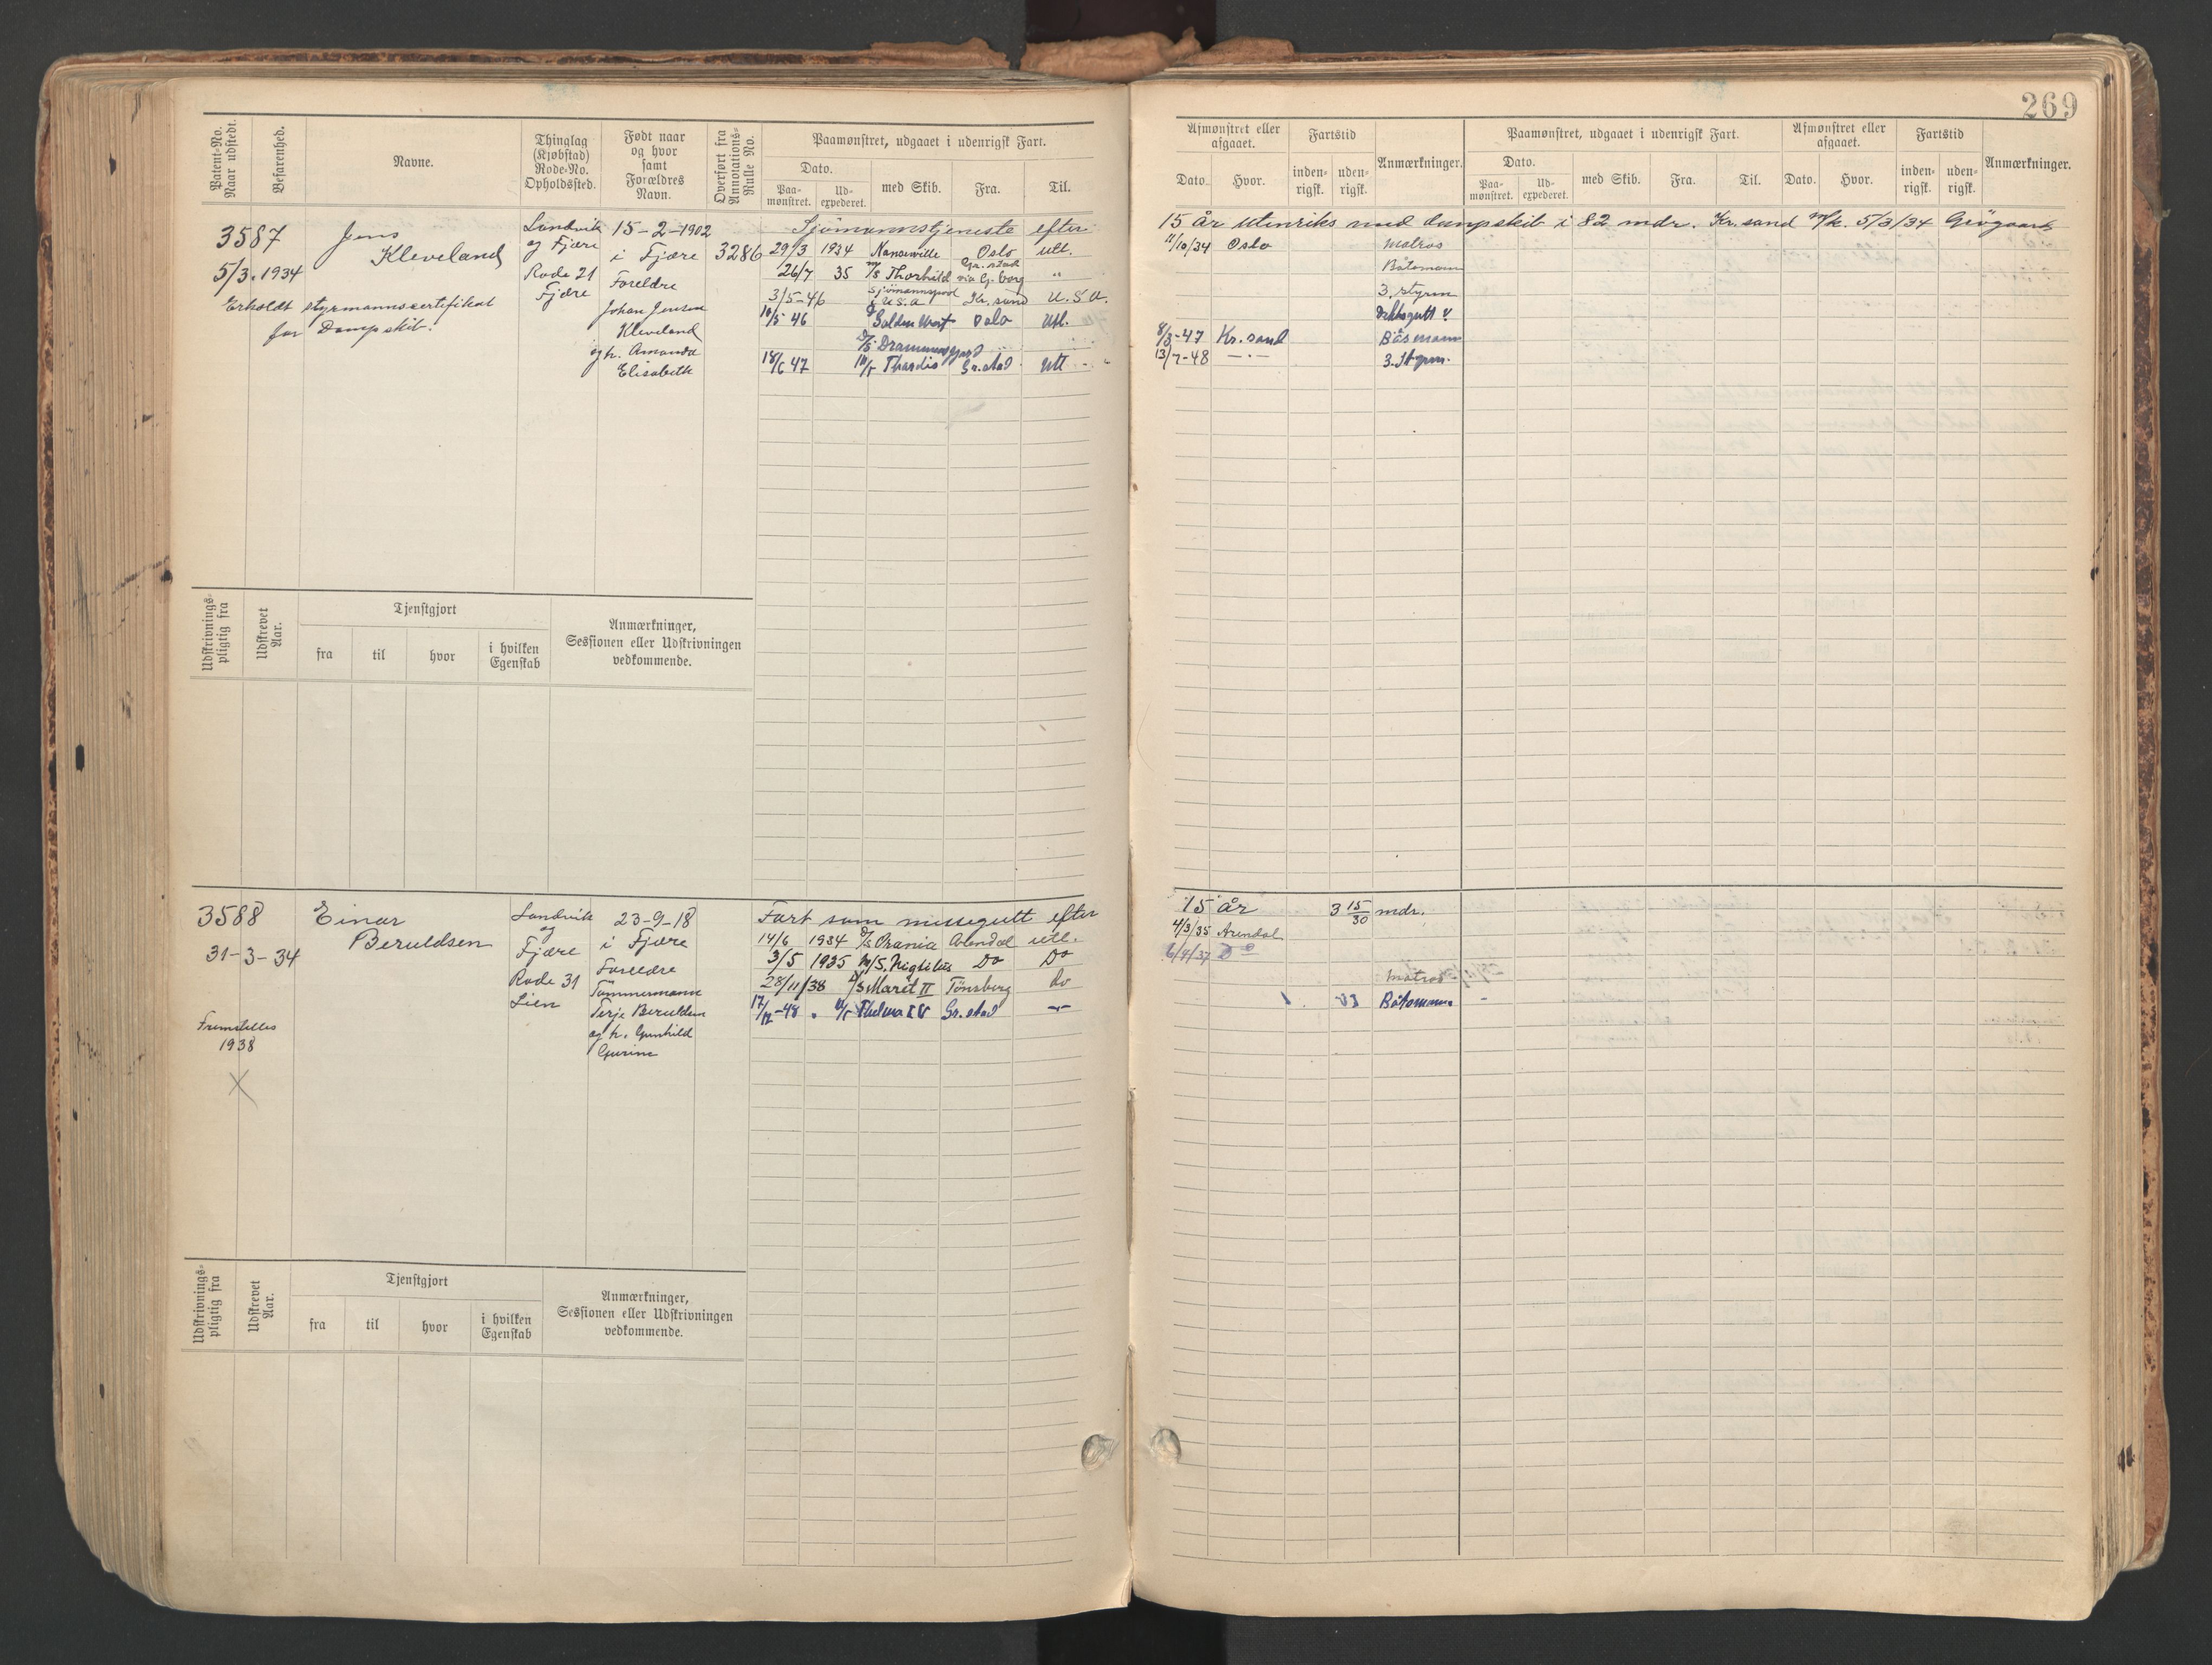 269
Patent-No. Naar udstedt.
Befarenhed.
Navne.
Thinglag (Kjøbstad) Rode-No. Opholdssted.
Født naar og hvor samt Forældres Navn.
Overført fra Annotations-Rulle No.
Paamønstret, udgaaet i udenrigsk Fart.
Dato.
Paa-mønstret.
Ud-expederet.
med Skib.
Fra.
Til.
Afmønstret eller afgaaet.
Dato.
Hvor.
Fartstid
inden-rigsk.
uden-rigsk.
Anmærkninger.
Paamønstret, udgaaet i udenrigsk Fart.
Dato.
Paa-mønstret.
Ud-expederet.
med Skib.
Fra.
Til.
Afmønstret eller afgaaet.
Dato.
Hvor.
Fartstid
inden-rigsk.
uden-rigsk.
Anmærkninger.
3587
5/3.1934
Jens
Kleveland
Erholdt styrmannscertifikat
for Dampskib.
Landvik
og Fjære
Rode 21
Fjære
15-2-1902
i Fjære
Foreldre
Johan Jensen
Kleveland
og h. Amanda
Elisabeth
3286
Sjömannstjeneste efter
15 år utenriks med dampskib i 82 mdr. Kr.sand 5/3/34
29/3 1934 Oslo utl.
11/10/34 Oslo Matros
26/7 35 M/S Thorhild Gr.stad via Gj. borg "
Båtsmann
3/5-46 U.S.A Kr. sund U.S.A.
3. styrm
10/5 46 Golden West Oslo Utl.
Dekksgutt
D/S Drammensfjord
8/3-47 Kr.sand Båsmann
18/6 47 Thordis Gr.stad Utl -
13/7-48 -·- 3. Styrm.
Udskrivnings-pligtig fra
Udskrevet Aar.
Tjenstgjort
fra
til
hvor
i hvilken Egenskab
Anmærkninger,
Sessionen eller Udskrivningen
vedkommende.
3588
31-3-34
Einar
Beruldsen
Fremstilles
1938
X
Landvik
og
Fjære
Rode 31
Lien
23-9-18
i Fjære
Foreldre
Tömmermann
Terje Beruldsen
og h. Gunhild
Gurine
Fart som messegutt efter
15 år 3 15/30 mdr.
14/6 1934 D/S Orania Arendal utl.
4/3/35 Arendal
3/5 1935 M/S. Do Do
6/9/37 Do
28/11/38 D/S Marit II Tønsberg Do
Matros
17/12-48 Thelma IV Gr.stad -"-
Båtsmann -
Udskrivnings-pligtig fra
Udskrevet Aar.
Tjenstgjort
fra
til
hvor
i hvilken Egenskab
Anmærkninger,
Sessionen eller Udskrivningen
vedkommende.